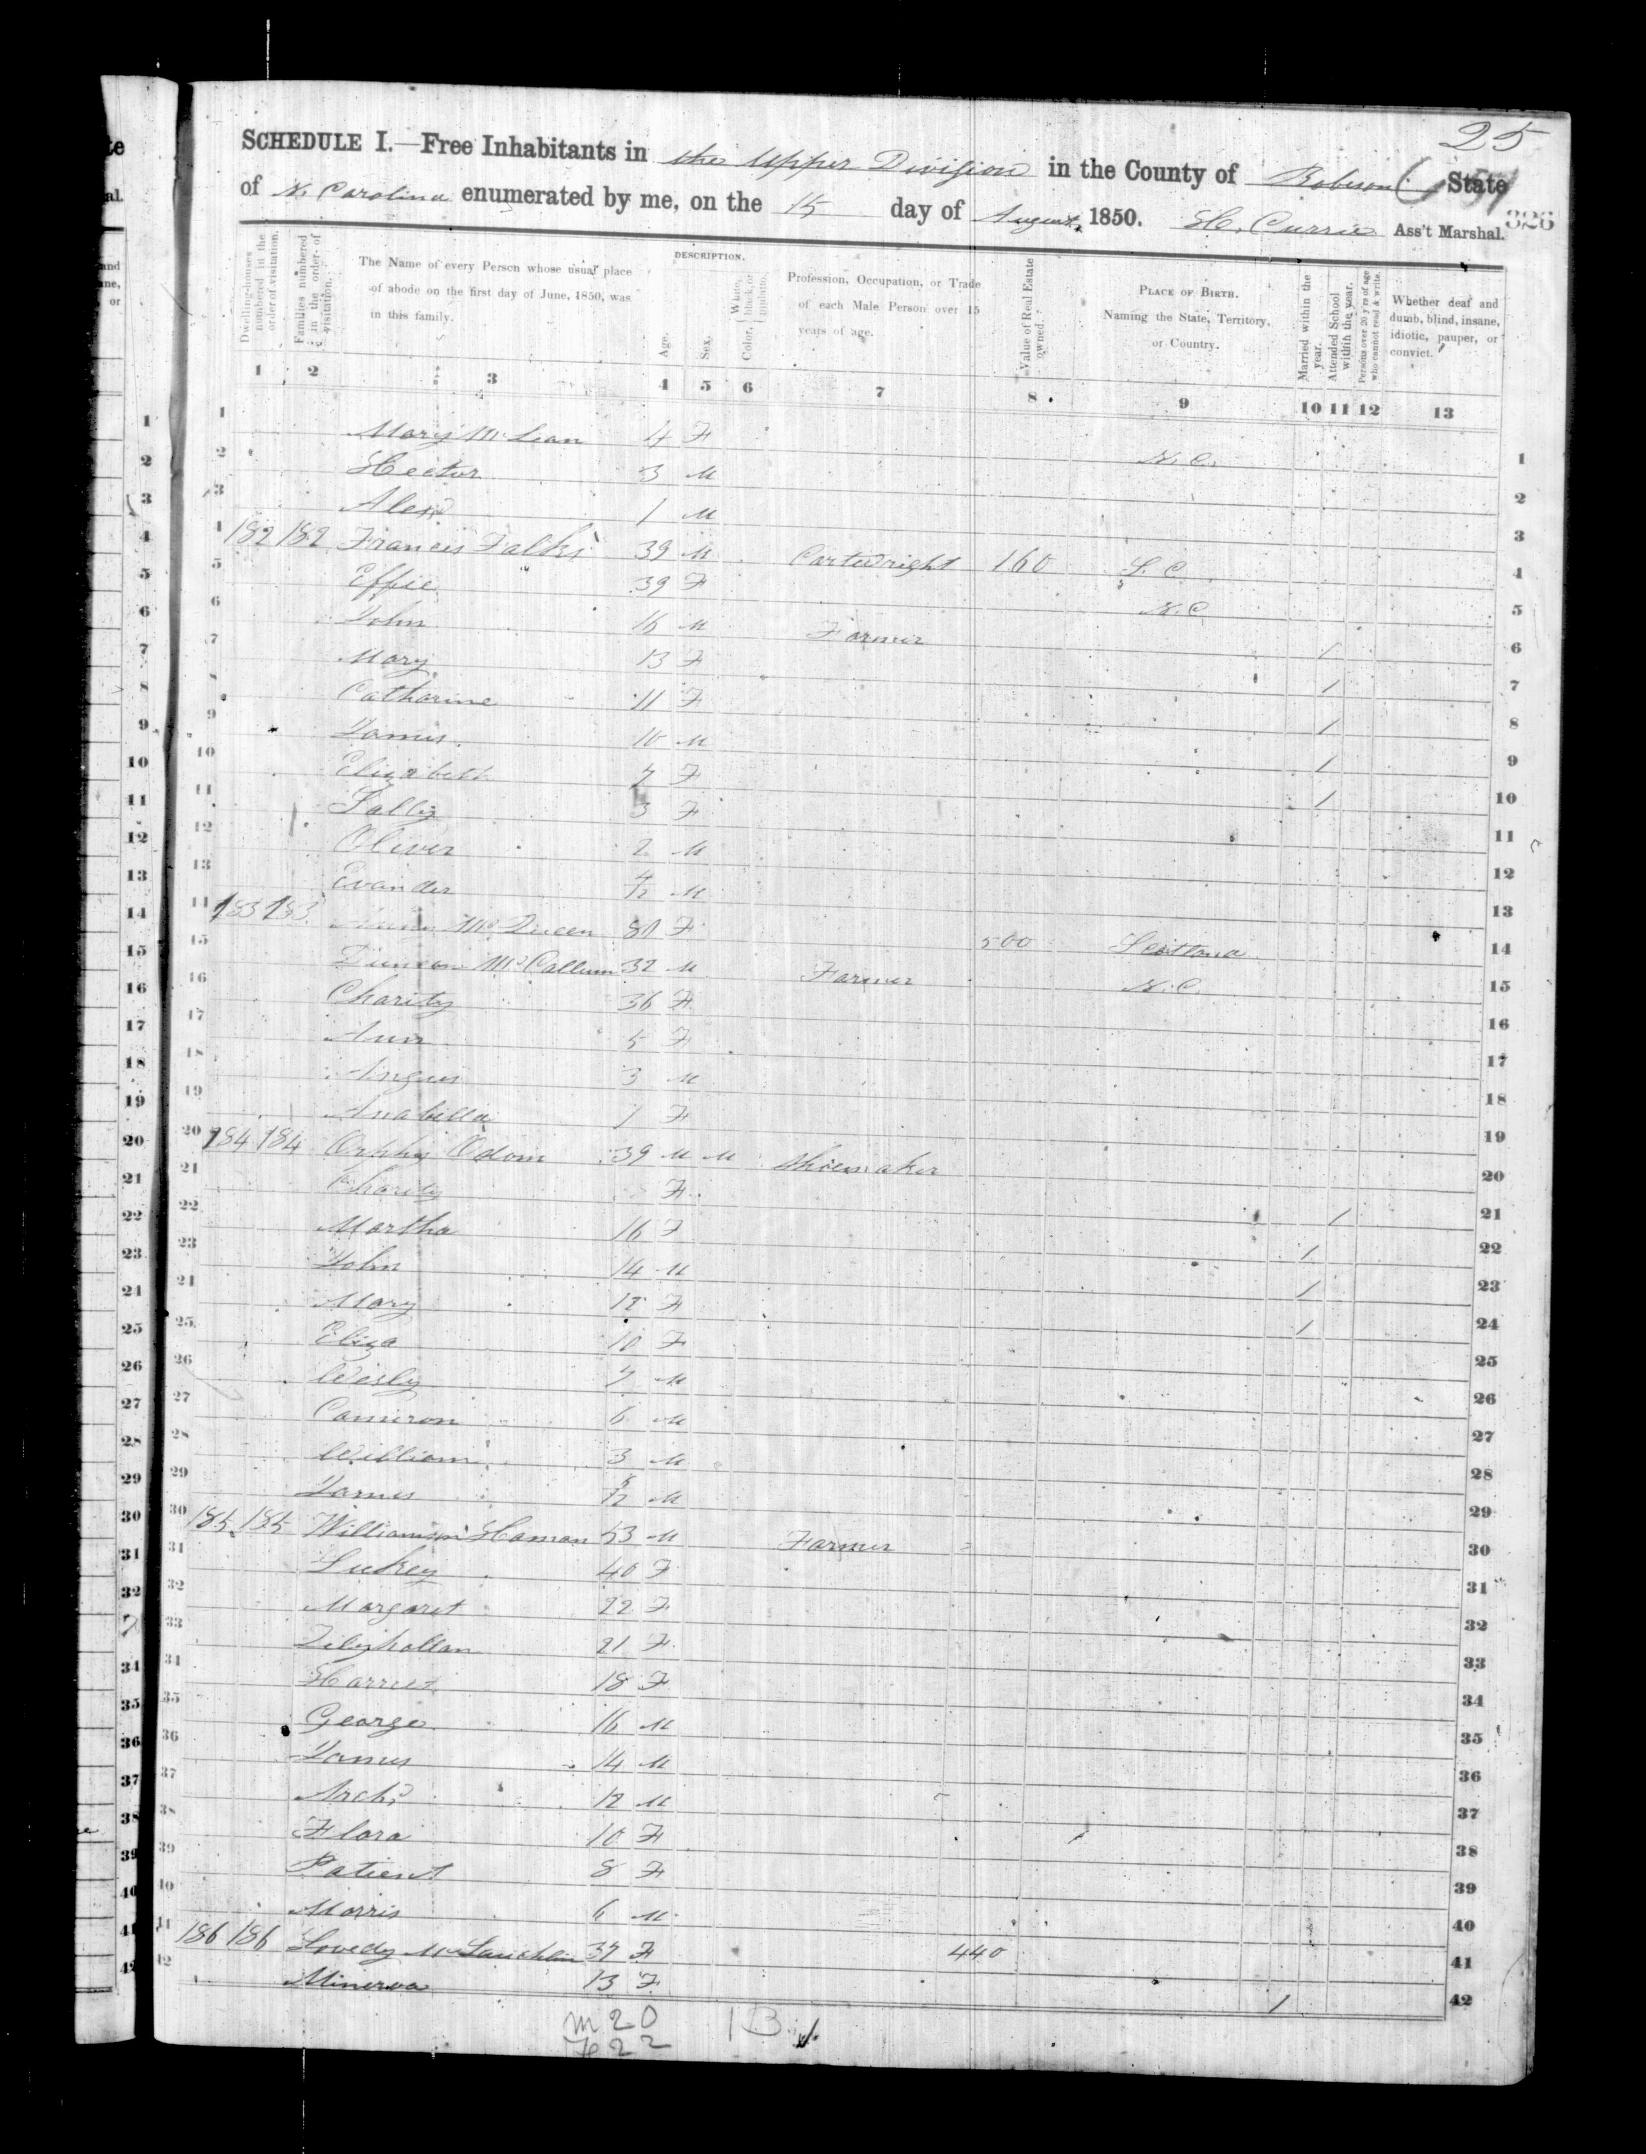 25
SCHEDULE I.—Free Inhabitants in the Upper Division in the County of Robeson State
of N. Carolina enumerated by me, on the 15 day of August, 1850. H. Currie Ass't Marshal. 326
Dwelling-houses numbered in the order of visitation.
Families numbered in the order of visitation.
The Name of every Person whose usual place of abode on the first day of June, 1850, was in this family.
DESCRIPTION.
Age.
Sex.
Color, White, black, or mulatto.
Profession, Occupation, or Trade of each Male Person over 15 years of age.
Value of Real Estate owned.
PLACE OF BIRTH. Naming the State, Territory, or Country.
Married within the year.
Attended School within the year.
Persons over 20 y'rs of age who cannot read & write.
Whether deaf and dumb, blind, insane, idiotic, pauper, or convict.
1 2 3 4 5 6 7 8 9 10 11 12 13
1 Mary McLean 4 F N. C. 1
2 Hector 3 M 2
3 Alexr 1 M 3
4 182 182 Francis Falks 39 M Cartwright 160 S. C. 4
5 Effie 39 F N. C. 5
6 John 16 M Farmer 1 6
7 Mary 13 F 1 7
8 Catharine 11 F 1 8
9 James 10 M 1 9
10 Elizabeth 7 F 1 10
11 Sally 3 F 11
12 Oliver 2 M 12
13 Evander 4/12 M 13
14 183 183 McQueen 80 F 500 Scotland 14
15 Duncan McCallum 32 M Farmer N. C. 15
16 Charity 36 F 16
17 Ann 5 F 17
18 Angus 3 M 18
19 Anabella 1 F 19
20 184 184 Orphy Odom 39 M M Shoemaker 20
21 Charity F 1 21
22 Martha 16 F 1 22
23 John 14 M 1 23
24 Mary 12 F 1 24
25 Eliza 10 F 25
26 Wesly 7 M 26
27 Cameron 6 M 27
28 William 3 M 28
29 James /12 M 29
30 185 185 Williamson Haman 53 M Farmer 30
31 Luckey 40 F 31
32 Margaret 22 F 32
33 21 F 33
34 Harriet 18 F 34
35 George 16 M 35
36 James 14 M 36
37 Archd 12 M 37
38 Flora 10 F 38
39 Patient 8 F 39
40 Morris 6 M 40
41 186 186 Lovedy McLauchlin 37 F 440 41
42 Minerva 13 F 1 42
M 20
Fe 22
1 B